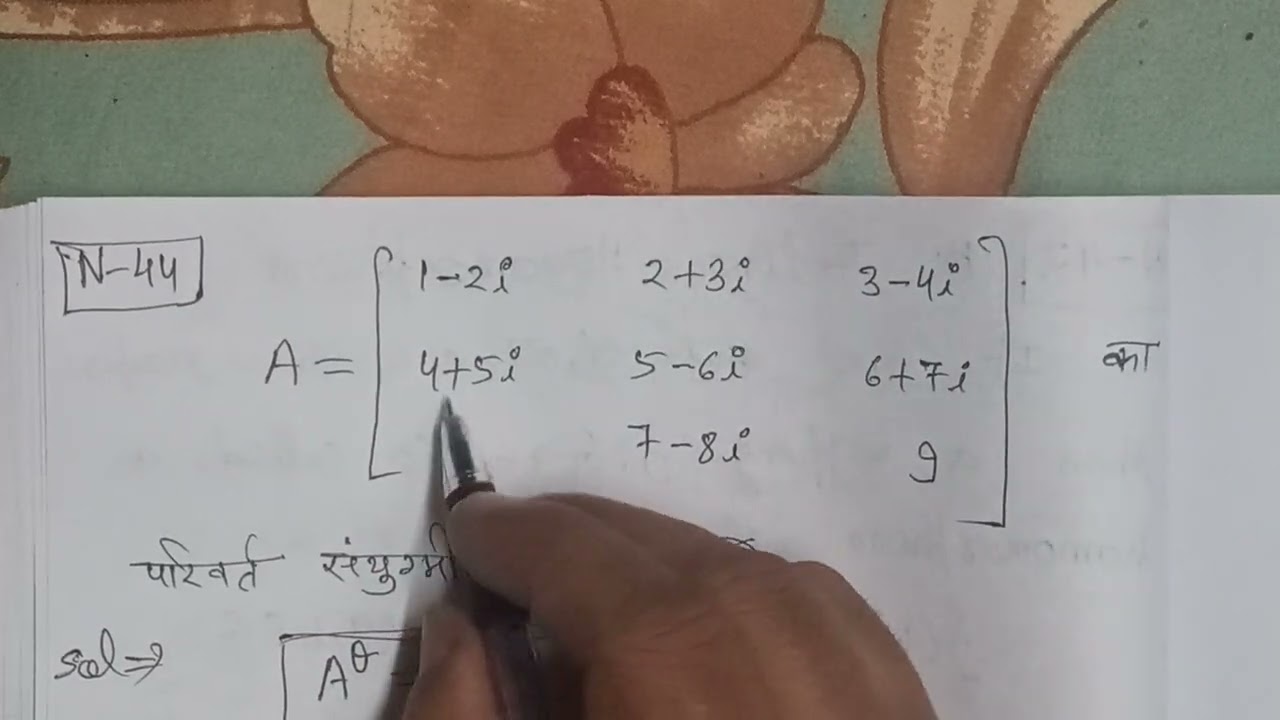 N-44
1-2i 2+3i 3-4i
A = 4+5i 5-6i 6+7i का
7-8i 9
परिवर्त संयुग्मी
sol⇒ A^θ